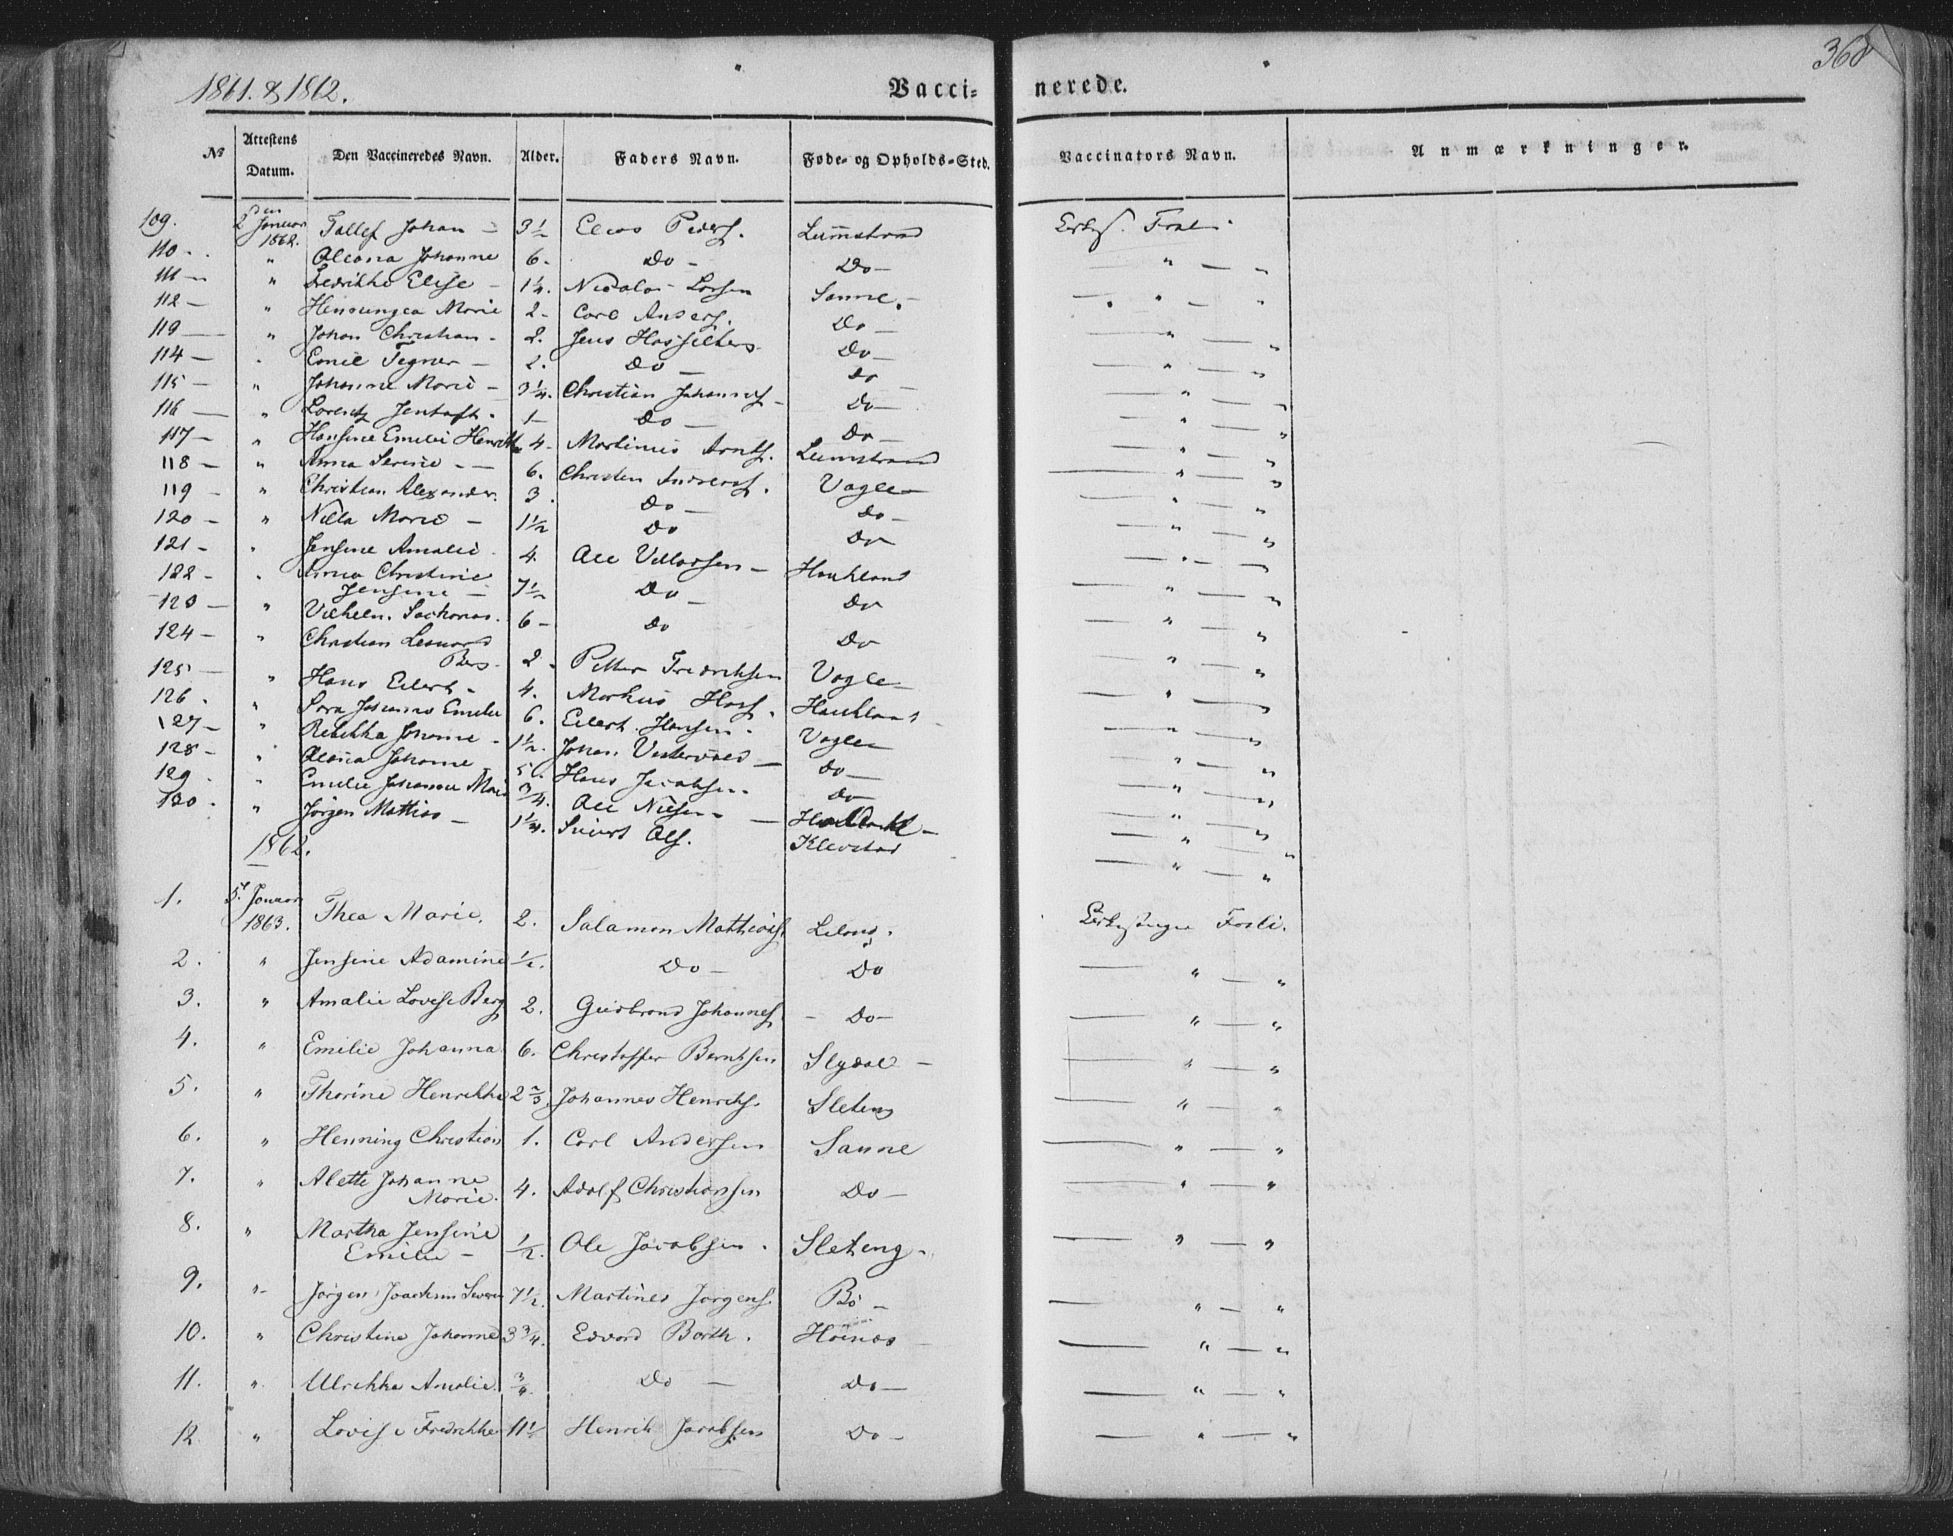 1861. & 1862.
Vacci-nerede.
368
No
Attestens Datum.
Den Vaccineredes Navn.
Alder.
Faders Navn.
Føde- og Opholds-Sted.
Vaccinators Navn.
Anmærkninger.
109. 2 den Januar 1862. Tollef Johan - 3½ Peders. Lumstrand
110 - " Oleana Johanne 6. Do - Do - " - "
111 - " Fredrikke Elise - 1¼. Nicolai Larsen Sanne - " - "
112 - " Marie 2 - Carl Anders. Do - " - "
119 - " Johan Christian - 2. Jens Do - " - "
114 - " Emil Tegner - 2. Do - Do - " - "
115 - " Johanne Marie - 3¼. Christian Johannes - Do - " - "
116 - " Lorentz Jentoft - 1 - Do - Do - " - "
117 - " Hansine Emilie Henrikke 4. Martinus Arnts. Lumstrand " - "
118 - " Anna Serine - 6. Christen Anders. Vagle - " - "
119 - " Christian Alexander. 3. Do - Do - " - "
120 - " Nilla Marie - 1½ Do Do - " - "
121 - " Jensine Amalie 4. Ole - Haukland " - "
122 - " Anna Christine Jensine - 7½ Do - Do " - "
123 - " Vilhelm Sackarias. 6 - Do Do " - "
124 - " Christian Leonard Berg - 2. Petter Fredriksen Vagle - " - "
125 - " Hans Eilert - 4. Markus Hans. Haukland " - "
126. " Sara Johanna Emilie 6. Eilert Hansen - Vagle - " - "
127 - " Rebekka Johanne - 1½. Johan - Do - " - "
128 - " Oleana Johanne 5 Hans Jacobsen. Do - " - "
129. " Emilie Johanna Marie ¾. Ole Nilsen - " - "
130. " Jörgen Mathias - 1¼. Sivert Ols. Klevstad " - "
1862.
1. 5t Januar 1863. Thea Marie. 2. Salamon Mathias. Leland. Kirkesanger Fosli.
2. " Jensine Adamine ½. Do - Do " - "
3. " Amalie Lovise Berg 2. Gudbrand Johannes. - Do - " - "
4. " Emilie Johanna 6. Christoffer Berntsen Slydal - " - "
5. " Thorine Henrikke 2⅔ Johannes Henriks. Sleteng " - "
6. " Henning Christian 1. Carl Andersen Sanne " - "
7. " Alette Johanne Marie. 4. Adolf Christiansen Do - " - "
8. " Martha Jensine Emilie - ½. Ole Jacobsen. Sleteng - " - "
9. " Jörgen Joachim Severin 7½. Martines Jörgens. Bö - " - "
10. " Christine Johanne 3¾. Edvard Barth. Höinæs " - "
11. " Ulrikka Amalie. ¾. Do - Do - " - "
12 " Lovise Fredrikke 11½ Henrik Jacobsen Do - " - "